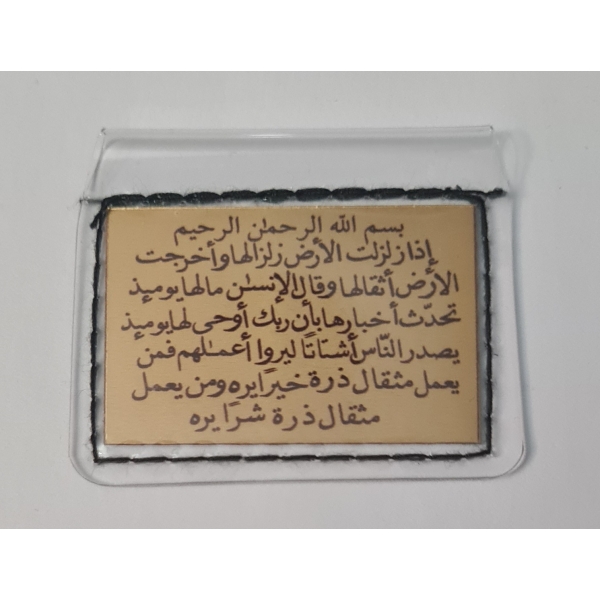 بسم الله الرحمٰن الرحيم
إذا زلزلت الأرض زلزالها وأخرجت
الأرض أثقالها وقال الإنسٰن مالها يومئذ
تحدّث أخبارها بأن ربك أوحى لها يومئذ
يصدر النّاس أشتاتًا ليروا أعمٰلهم فمن
يعمل مثقال ذرة خيرًا يره ومن يعمل
مثقال ذرة شرًا يره